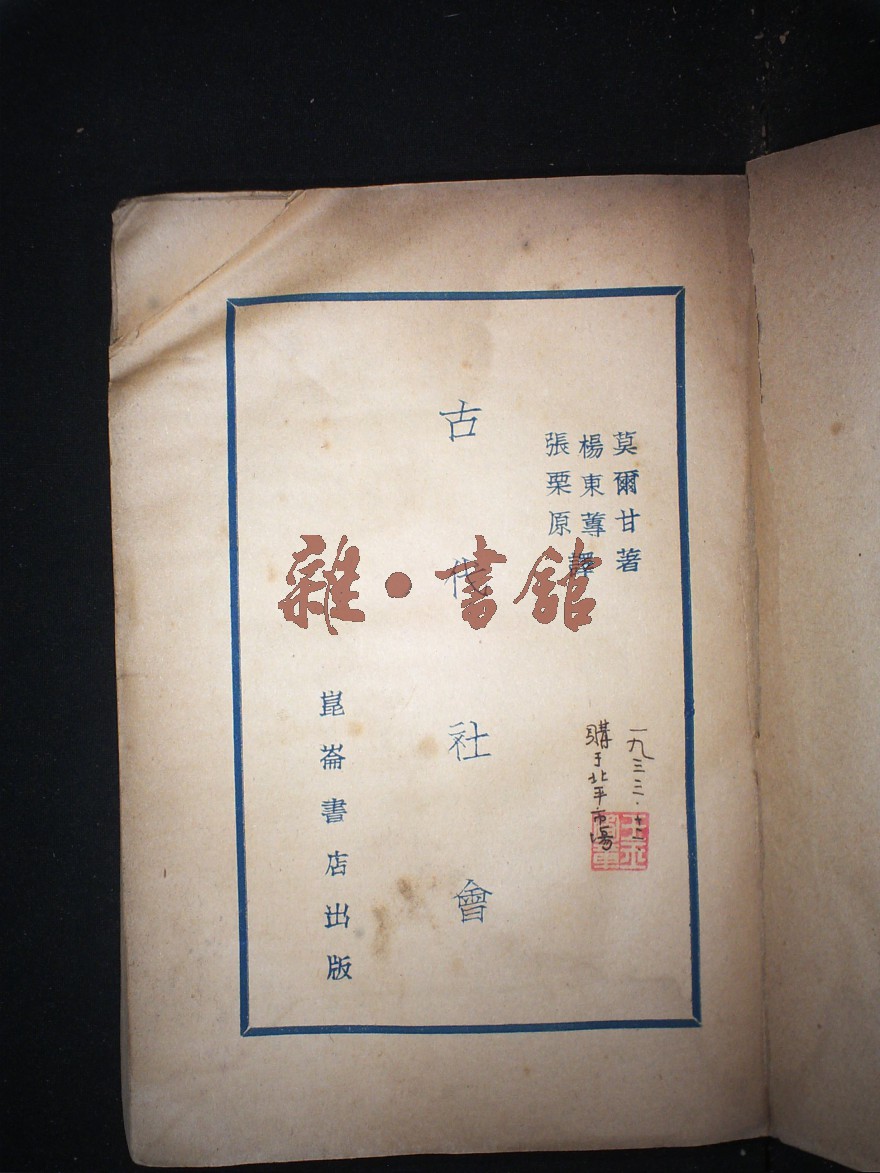 莫爾甘著
楊東蓴
張栗原
譯
古代社會
崑崙書店出版
一九三三·十二·
購于北平市場
雜·書館